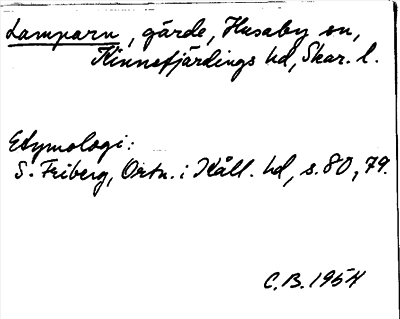 Lamparn, gärde, Husaby sn,
Kinnefjärdings hd, Skar. l.
Etymologi:
S. Friberg, Ortn. i Kåll. hd, s. 80, 79.
C.B. 1954